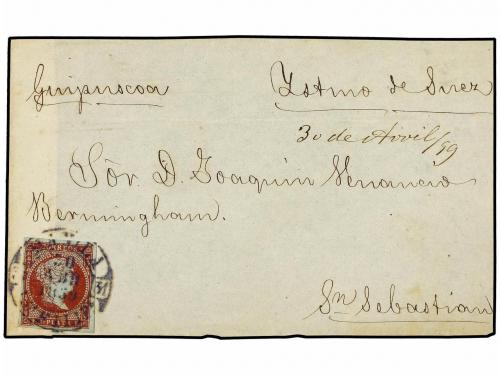 Guipuscoa
Ystmo de Suez
30 de Avril/59
Sôr. D. Joaquin Venancio
Bermingham.
Sn Sebastian